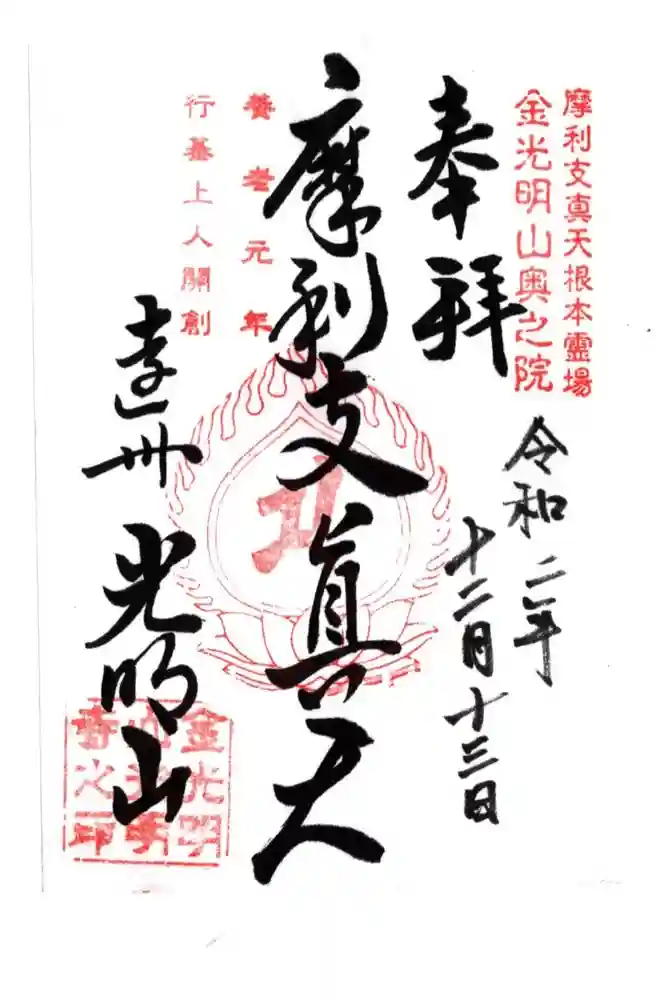 摩利支真天根本霊場
金光明山奥之院
奉拝
令和二年
十二月十三日
摩利支真天
養老元年
行基上人開創
遠州 光明山
金光明
山光明
寺之印